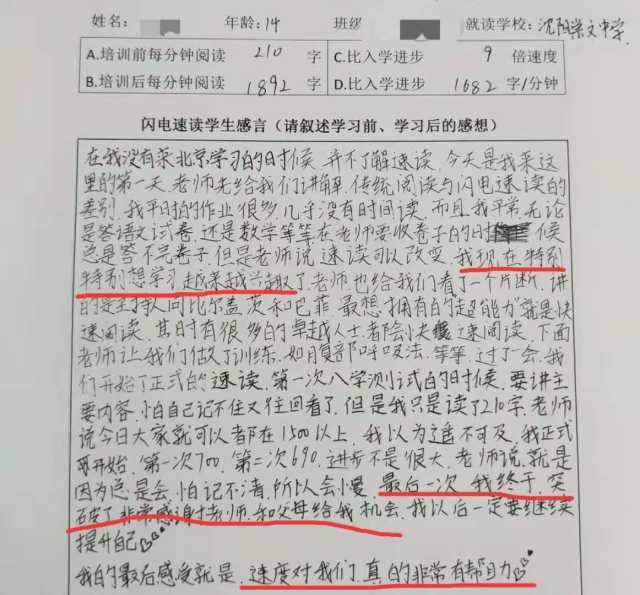 姓名: 年龄: 14 班级 就读学校: 沈阳崇文中学.
A.培训前每分钟阅读 210 字 C.比入学进步 9 倍速度
B.培训后每分钟阅读 1892 字 D.比入学进步 1682 字/分钟
闪电速读学生感言（请叙述学习前、学习后的感想）
在我没有来北京学习的时候,并不了解速读,今天是我来这
里的第一天,老师先给我们讲解,传统阅读与闪电速读的
差别.我平时的作业很多,几乎没有时间读,而且,我平常无论
是答语文试卷,还是数学等等在老师要收卷子的时候
总是答不完卷子.但是老师说,速读可以改变,我现在特别
特别想学习,越来越兴趣了.老师也给我们看了一个片断,讲
的是主持人问比尔盖茨和巴菲,最想拥有的超能力就是快
速阅读.其时有很多的卓越人士者都会快速阅读.下面
老师让我们做了训练.如腹部呼吸法.等等.过了一会.我
们开始了正式的速读.第一次入学测试的时候.要讲主
要内容.怕自己记不住又往回看了.但是我只是读了210字.老师
说今日大家就可以都在1500以上,我以为遥不可及.我正式
开始.第一次700.第二次690.进步不是很大.老师说.就是
因为总是会.怕记不清.所以会慢.最后一次.我终于.突
破了非常感谢老师.和父母给我机会.我以后一定要继续
提升自己
我的最后感受就是.速度对我们.真的非常有帮助